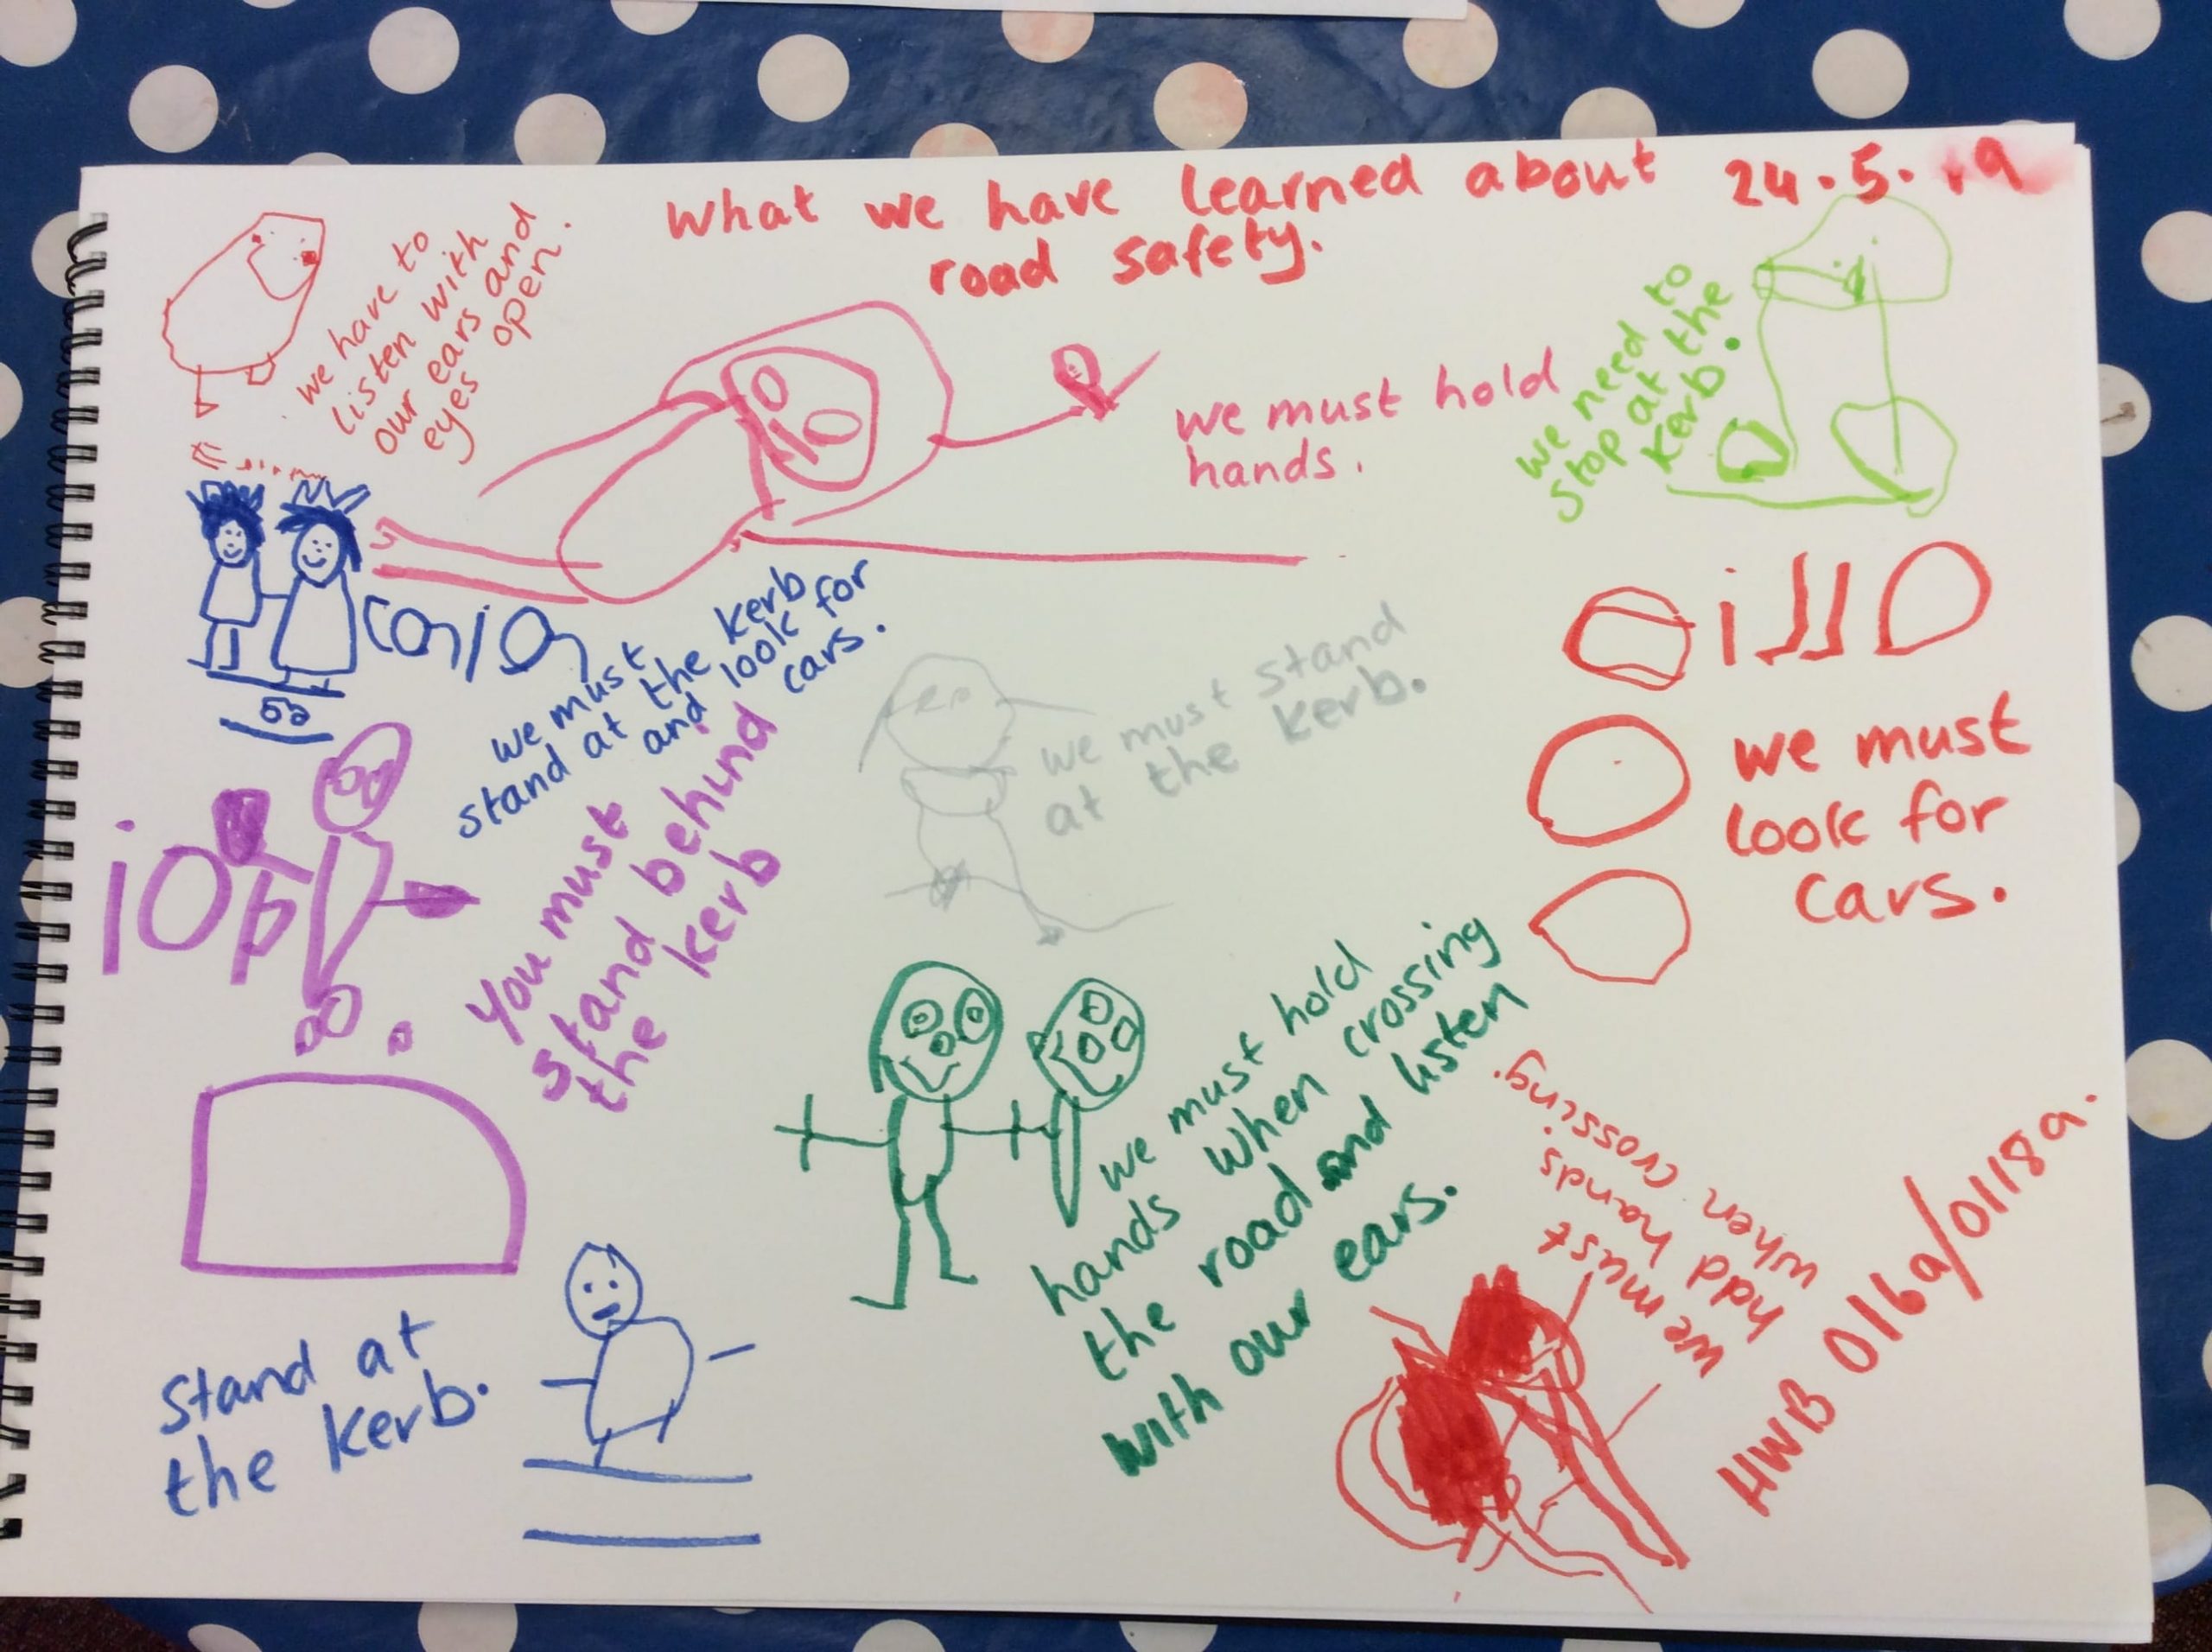 What we have learned about 24.5.19
road safety.
we have to
listen with
our ears and
eyes open.
we must hold
hands.
we need to
stop at the
kerb.
we must
stand at the kerb
and look for
cars.
we must stand
at the kerb.
we must
look for
cars.
You must
stand behind
the kerb
we must hold
hands when crossing
the road and listen
with our ears.
we must
hold hands
when crossing.
Stand at
the kerb.
HWB 016a/0118a.